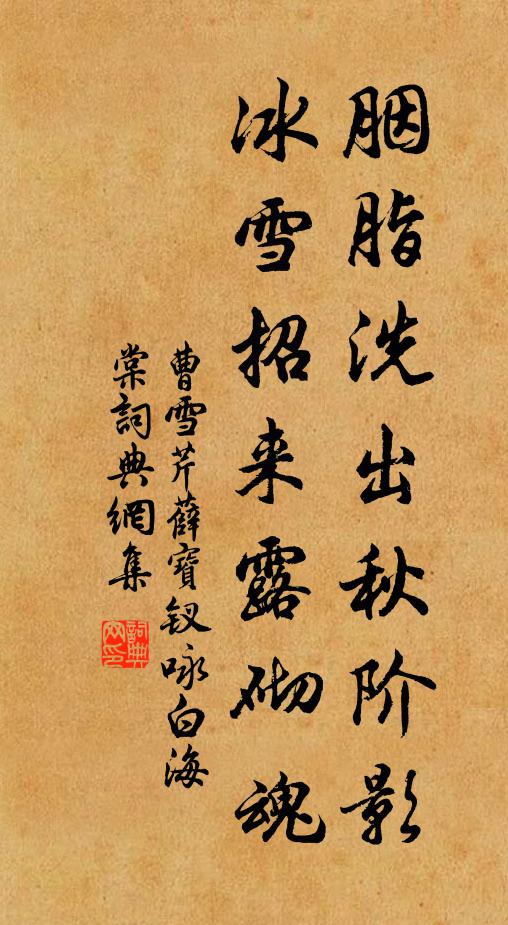 胭脂洗出秋阶影
冰雪招来露砌魂
曹雪芹薛寶釵咏白海
棠詞典網集
詞典
网印